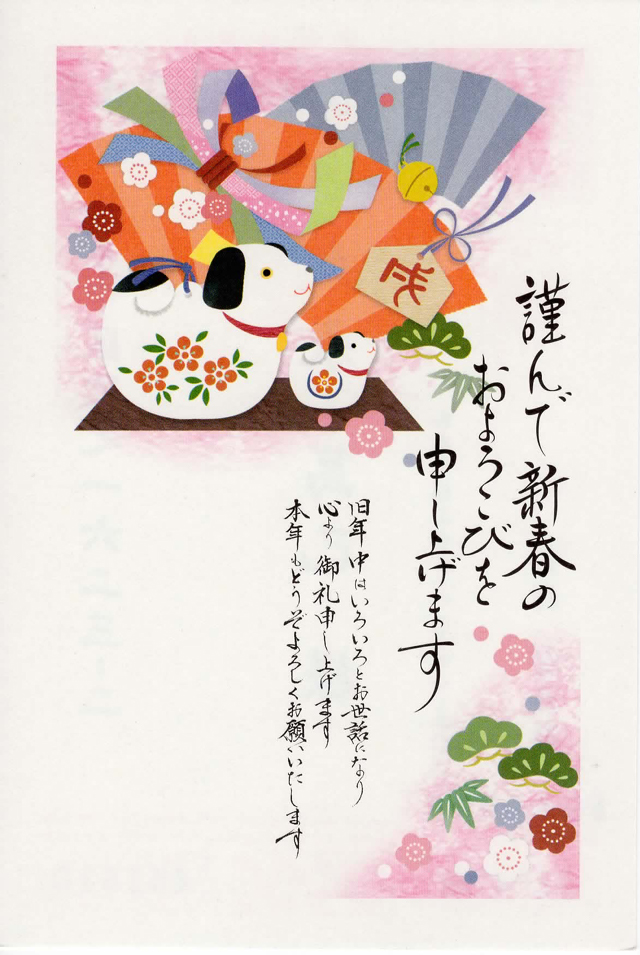 謹んで新春の
およろこびを
申し上げます
旧年中はいろいろとお世話になり
心より御礼申し上げます
本年もどうぞよろしくお願いいたします
戌